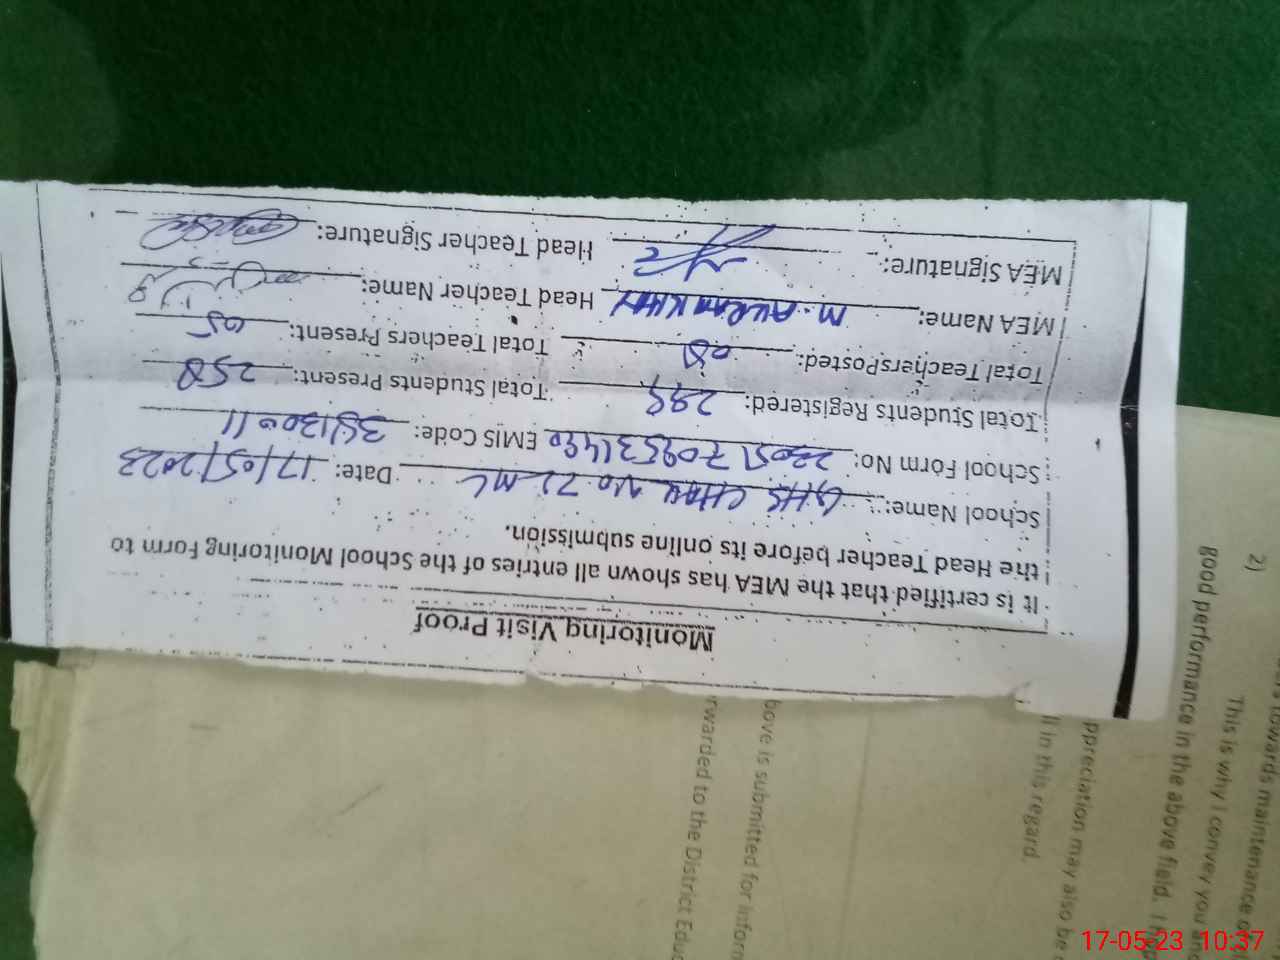 Monitoring Visit Proof
It is certified that the MEA has shown all entries of the School Monitoring Form to
the Head Teacher before its online submission.
School Name: GHS CHAK NO 71 ML Date: 17/05/2023
School Form No: EMIS Code:
Total Students Registered: Total Students Present: 258
Total Teachers Posted: 08 Total Teachers Present: 05
MEA Name: M. AKRAM KHAN Head Teacher Name:
MEA Signature: Head Teacher Signature:
2)
towards maintenance
This is why I convey you and
good performance in the above field. I
ppreciation may also be
ll in this regard.
bove is submitted for inform
rwarded to the District Educ
17-05-23 10:37